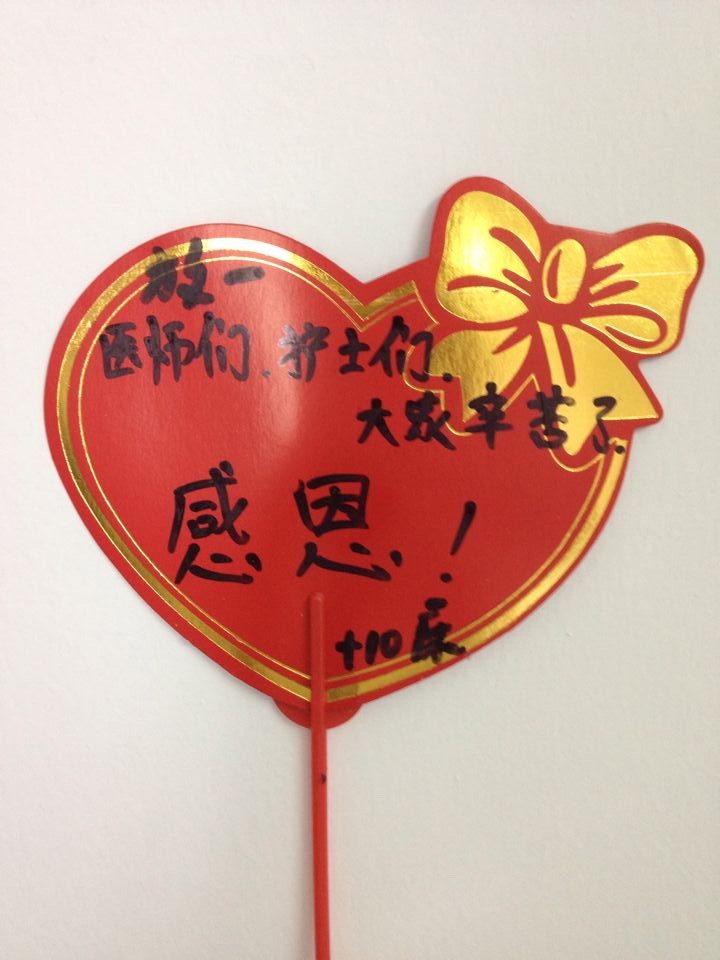 放一
医师们、护士们、
大家辛苦了、
感恩!
+10床